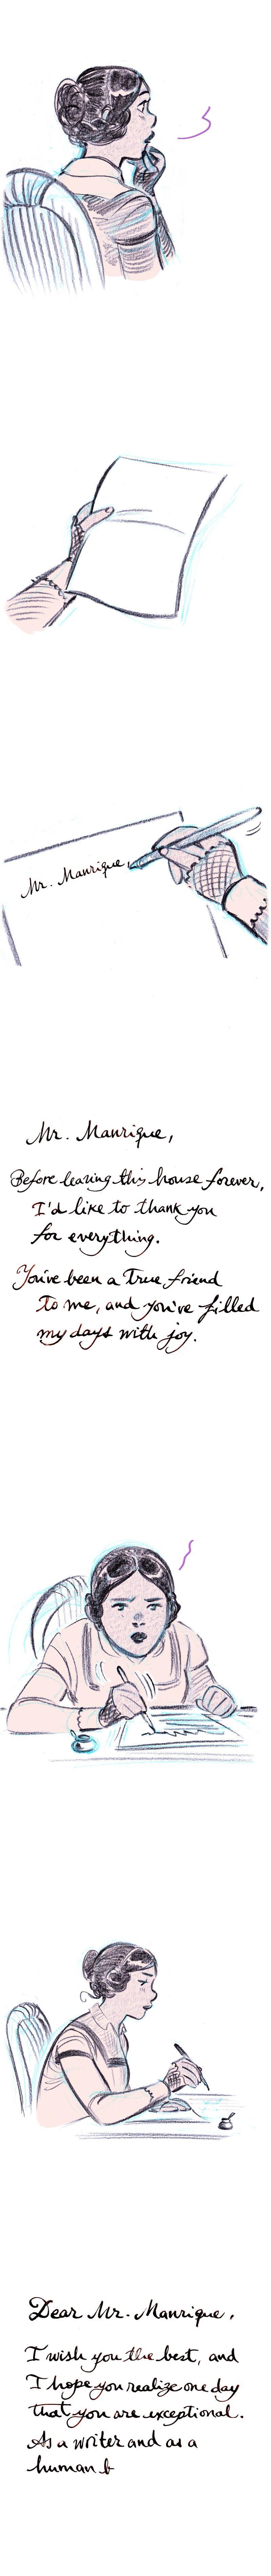 Mr. Manrique,
Mr. Manrique,
Before leaving this house forever,
I'd like to thank you
for everything.
You've been a true friend
to me, and you've filled
my days with joy.
Dear Mr. Manrique,
I wish you the best, and
I hope you realize one day
that you are exceptional.
As a writer and as a
human b